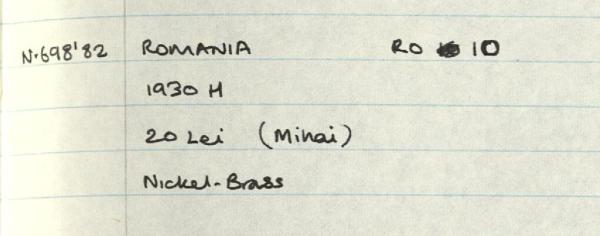 N.698'82 ROMANIA RO 10
1930 H
20 Lei (Mihai)
Nickel-Brass